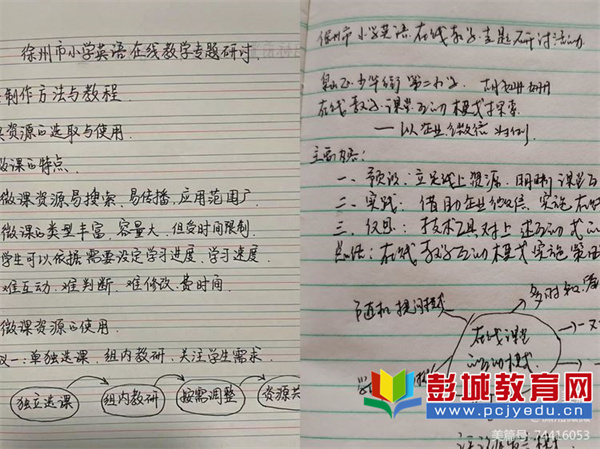 徐州市小学英语在线教学专题研讨
制作方法与教程
资源的选取与使用
微课的特点
微课资源易搜索、易传播、应用范围广
微课的类型丰富、容量大、但受时间限制
学生可以依据需要设定学习进度、学习速度
难互动、难判断、难修改、费时间
微课资源的使用
一:单独选课、组内教研、关注学生需求
独立选课 组内教研 按需调整 资源共
徐州市小学英语在线教学主题研讨活动
第二小学
在线教学课堂互动模式探索
——以企业微信为例
主要内容:
一、预设:立足线上资源,明晰课堂互
二、实践:借助企业微信,实施
三、技术工具对上述互动式的
总结:在线教学互动模式实施策略
随机提问模式
在线课堂
的互动模式
彭城教育网
www.pcjyedu.cn
美篇号:74416053